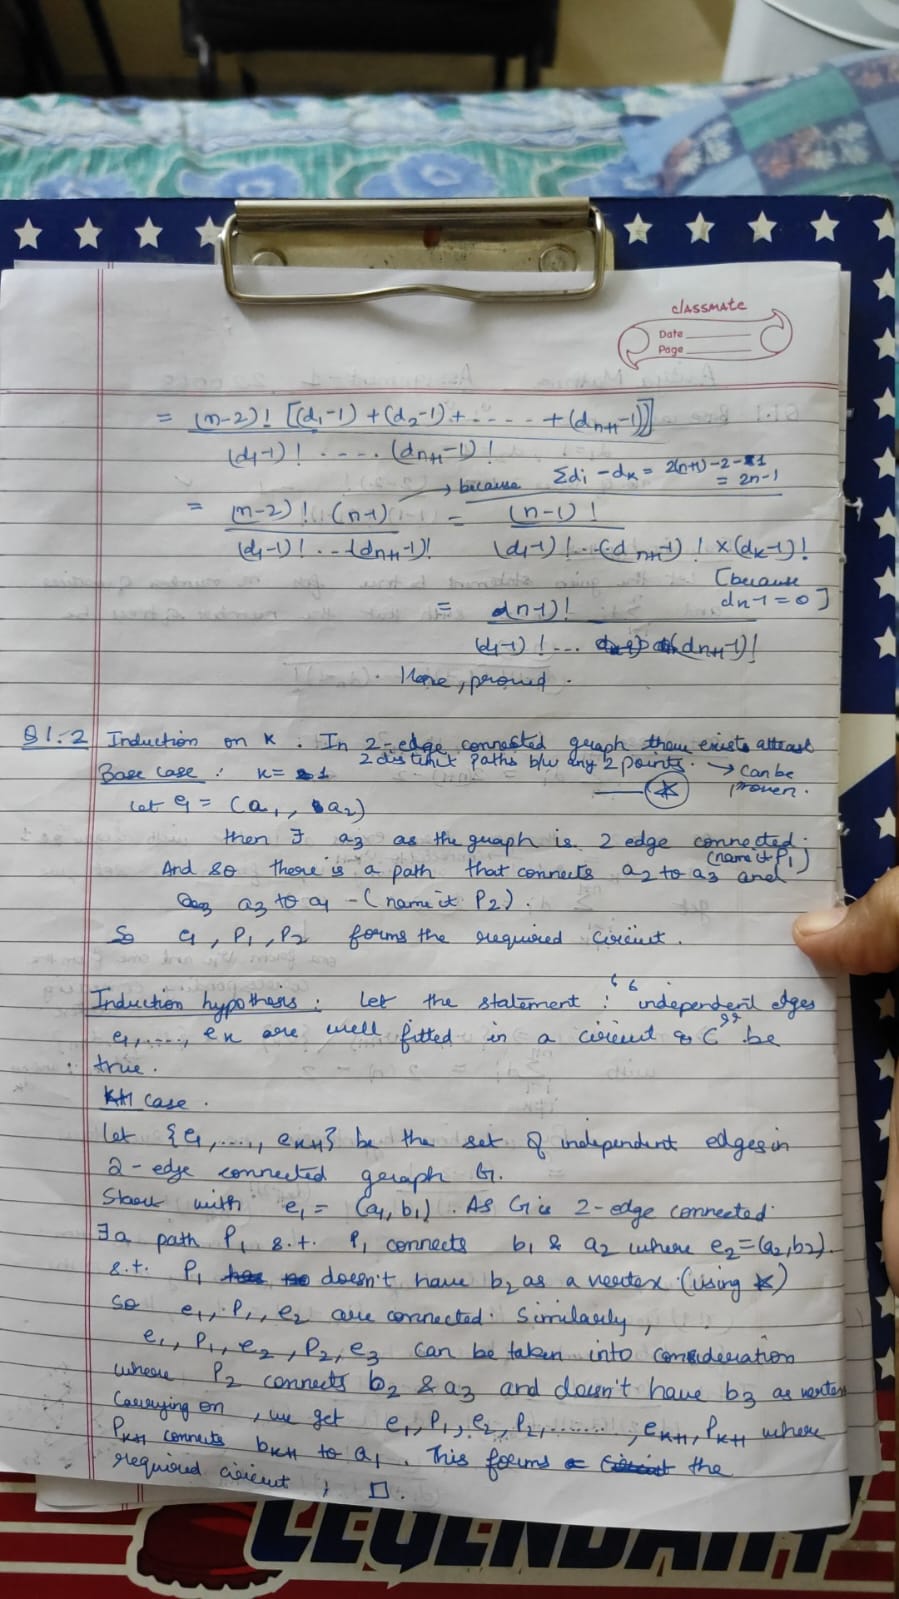 classmate
Date
Page
= (n-2)! [(d1-1) + (d2-1) + ----- + (dn+1-1)]
(d1-1)! ----. (dn+1-1)!
→ because Σdi - dk = 2(n+1)-2-1
= 2n-1
= (n-2)! (n-1) = (n-1)!
(d1-1)! .. -(dn+1-1)! (d1-1)! .-(dn+1-1)! ×(dk-1)!
[because
dn-1=0]
= (n-1)!
(d1-1)! ... (dn+1-1)!
. Hence, proved .
Q1.2 Induction on K . In 2-edge connected graph there exists atleast
2 distinct paths b/w any 2 points. → Can be
proven.
Base case : K= 1
Let e1 = (a1, a2)
then ∃ a3 as the graph is 2 edge connected.
And so there is a path that connects a2 to a3 (name it P1) and
a3 to a1 - (name it P2).
So e1, P1, P2 forms the required circuit.
Induction hypothesis : Let the statement : "independent edges
e1,...., ek are well fitted in a circuit C" be
true.
K+1 case .
Let {e1, ...., ek+1} be the set of independent edges in
2-edge connected graph G.
Start with e1 = (a1, b1). As G is 2-edge connected.
∃ a path P1 s.t. P1 connects b1 & a2 where e2=(a2,b2).
s.t. P1 doesn't have b2 as a vertex (using *)
So e1, P1, e2 are connected. Similarly,
e1, P1, e2, P2, e3 can be taken into consideration
where P2 connects b2 & a3 and doesn't have b3 as vertex
Carrying on , we get e1, P1, e2, P2, ........, ek+1, Pk+1 where
Pk+1 connects bk+1 to a1 . This forms the
required circuit ; □.
LEGENDARY